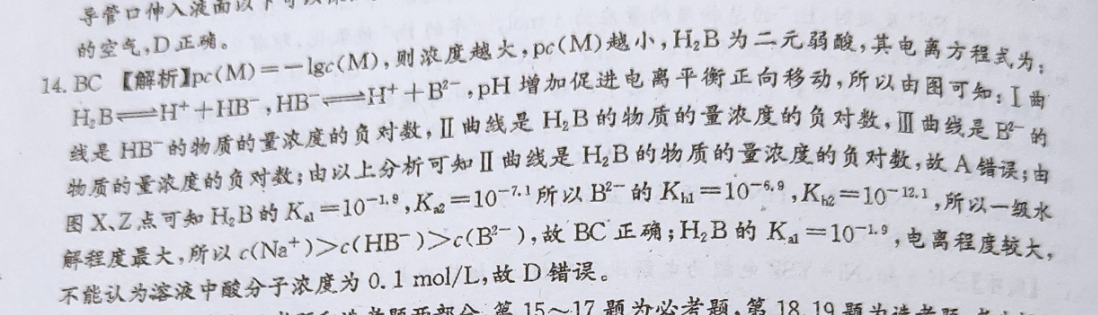 导管口伸入液面以下可以
的空气,D正确。
14. BC 【解析】pc(M)=-lgc(M),则浓度越大,pc(M)越小,H₂B为二元弱酸,其电离方程式为:
H₂B⇌H⁺+HB⁻,HB⁻⇌H⁺+B²⁻,pH增加促进电离平衡正向移动,所以由图可知:Ⅰ曲
线是HB⁻的物质的量浓度的负对数,Ⅱ曲线是H₂B的物质的量浓度的负对数,Ⅲ曲线是B²⁻的
物质的量浓度的负对数;由以上分析可知Ⅱ曲线是H₂B的物质的量浓度的负对数,故A错误;由
图X、Z点可知H₂B的Kₐ₁=10⁻¹·⁹,Kₐ₂=10⁻⁷·¹所以B²⁻的Kₕ₁=10⁻⁶·⁹,Kₕ₂=10⁻¹²·¹,所以一级水
解程度最大,所以c(Na⁺)>c(HB⁻)>c(B²⁻),故BC正确;H₂B的Kₐ₁=10⁻¹·⁹,电离程度较大,
不能认为溶液中酸分子浓度为0.1 mol/L,故D错误。
两部分,第15~17题为必考题,第18、19题为选考题